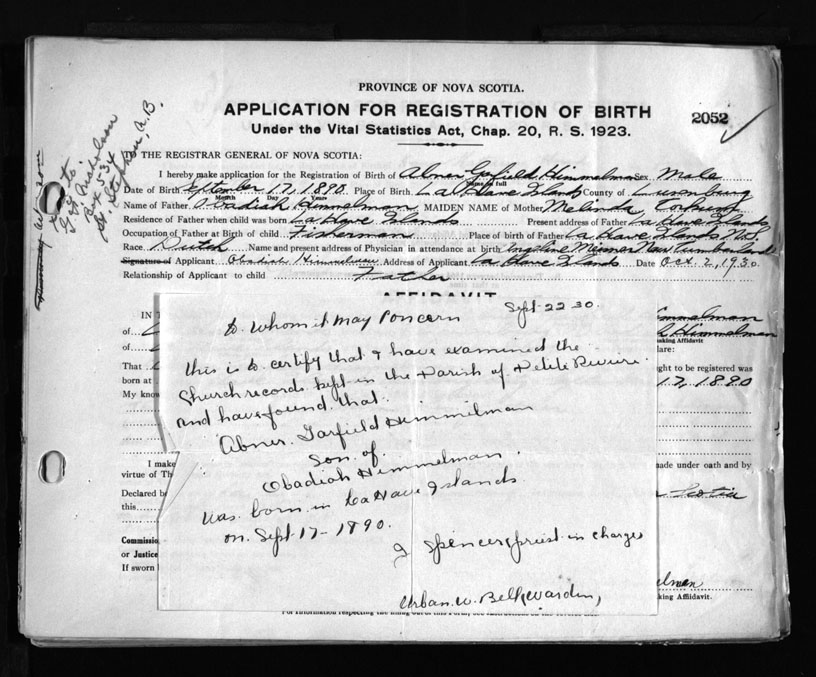 PROVINCE OF NOVA SCOTIA.
APPLICATION FOR REGISTRATION OF BIRTH
2052
Under the Vital Statistics Act, Chap. 20, R. S. 1923.
THE REGISTRAR GENERAL OF NOVA SCOTIA:
I hereby make application for the Registration of Birth of Abner Garfield Himmelman Sex Male
Name in full
Date of Birth September 17, 1890. Place of Birth La Have Islands County of Lunenburg
Month Day Year
Name of Father Obadiah Himmelman MAIDEN NAME of Mother Melinda
Residence of Father when child was born La Have Islands Present address of Father La Have Islands
Occupation of Father at Birth of child Fisherman Place of birth of Father La Have Islands N.S.
Race Dutch Name and present address of Physician in attendance at birth
Signature of Applicant Obadiah Himmelman Address of Applicant La Have Islands Date Oct. 2, 1930.
Relationship of Applicant to child Father
AFFIDAVIT
to:
Box 534
St. Stephen, N.B.
IN T
of
of
That
born at
My know
I make
virtue of Th
Declared be
this
Commissio
or Justice
If sworn
To whom it May Concern Sept 22 30.
this is to certify that I have examined the
Church records kept in the Parish of Petite Riviere
and have found that.
Abner. Garfield Himmelman
Son of.
Obadiah Himmelman.
Was. born in LaHave Islands
on. Sept. 17 - 1890.
J Spencer, priest in charge
Urban. W. Bell, warden,
Himmelman
Himmelman
king Affidavit
lare:
ght to be registered was
17, 1890
made under oath and by
Scotia
elman
king Affidavit.